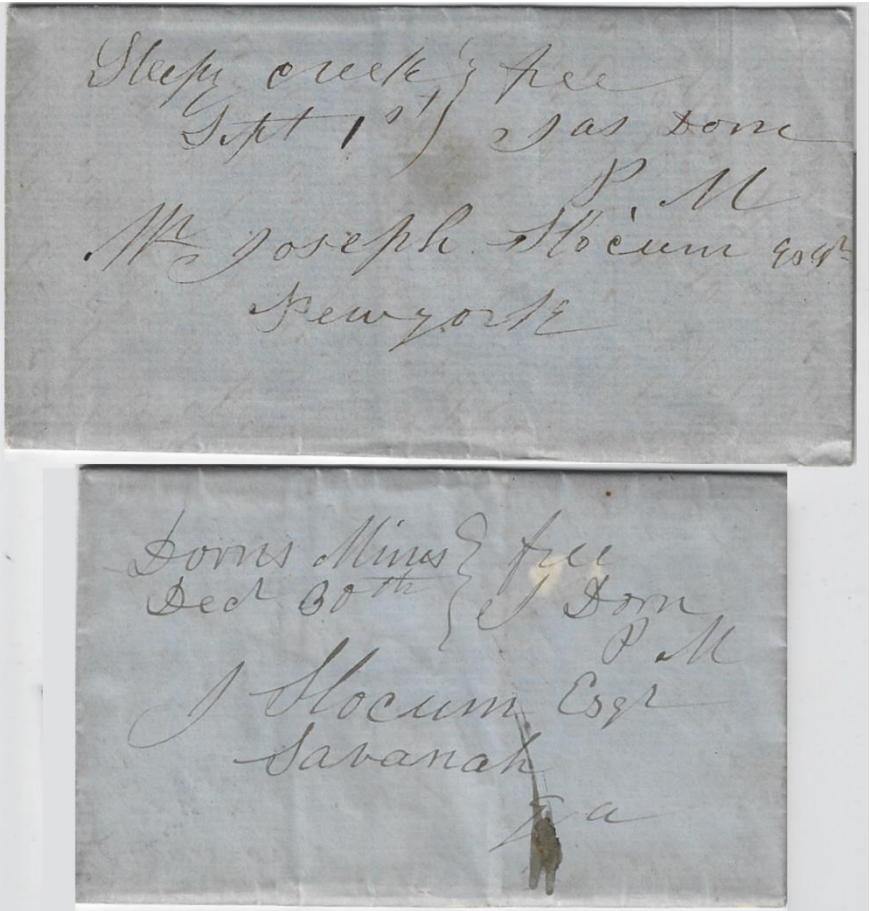 Sleepy creek } free
Sept 1st } Jas Dorn
P. M
Mr Joseph Slocum esqr
Newyork
Dorns Mines } free
Decr 30th } J Dorn
P M
J Slocum Esqr
Savanah
Ga